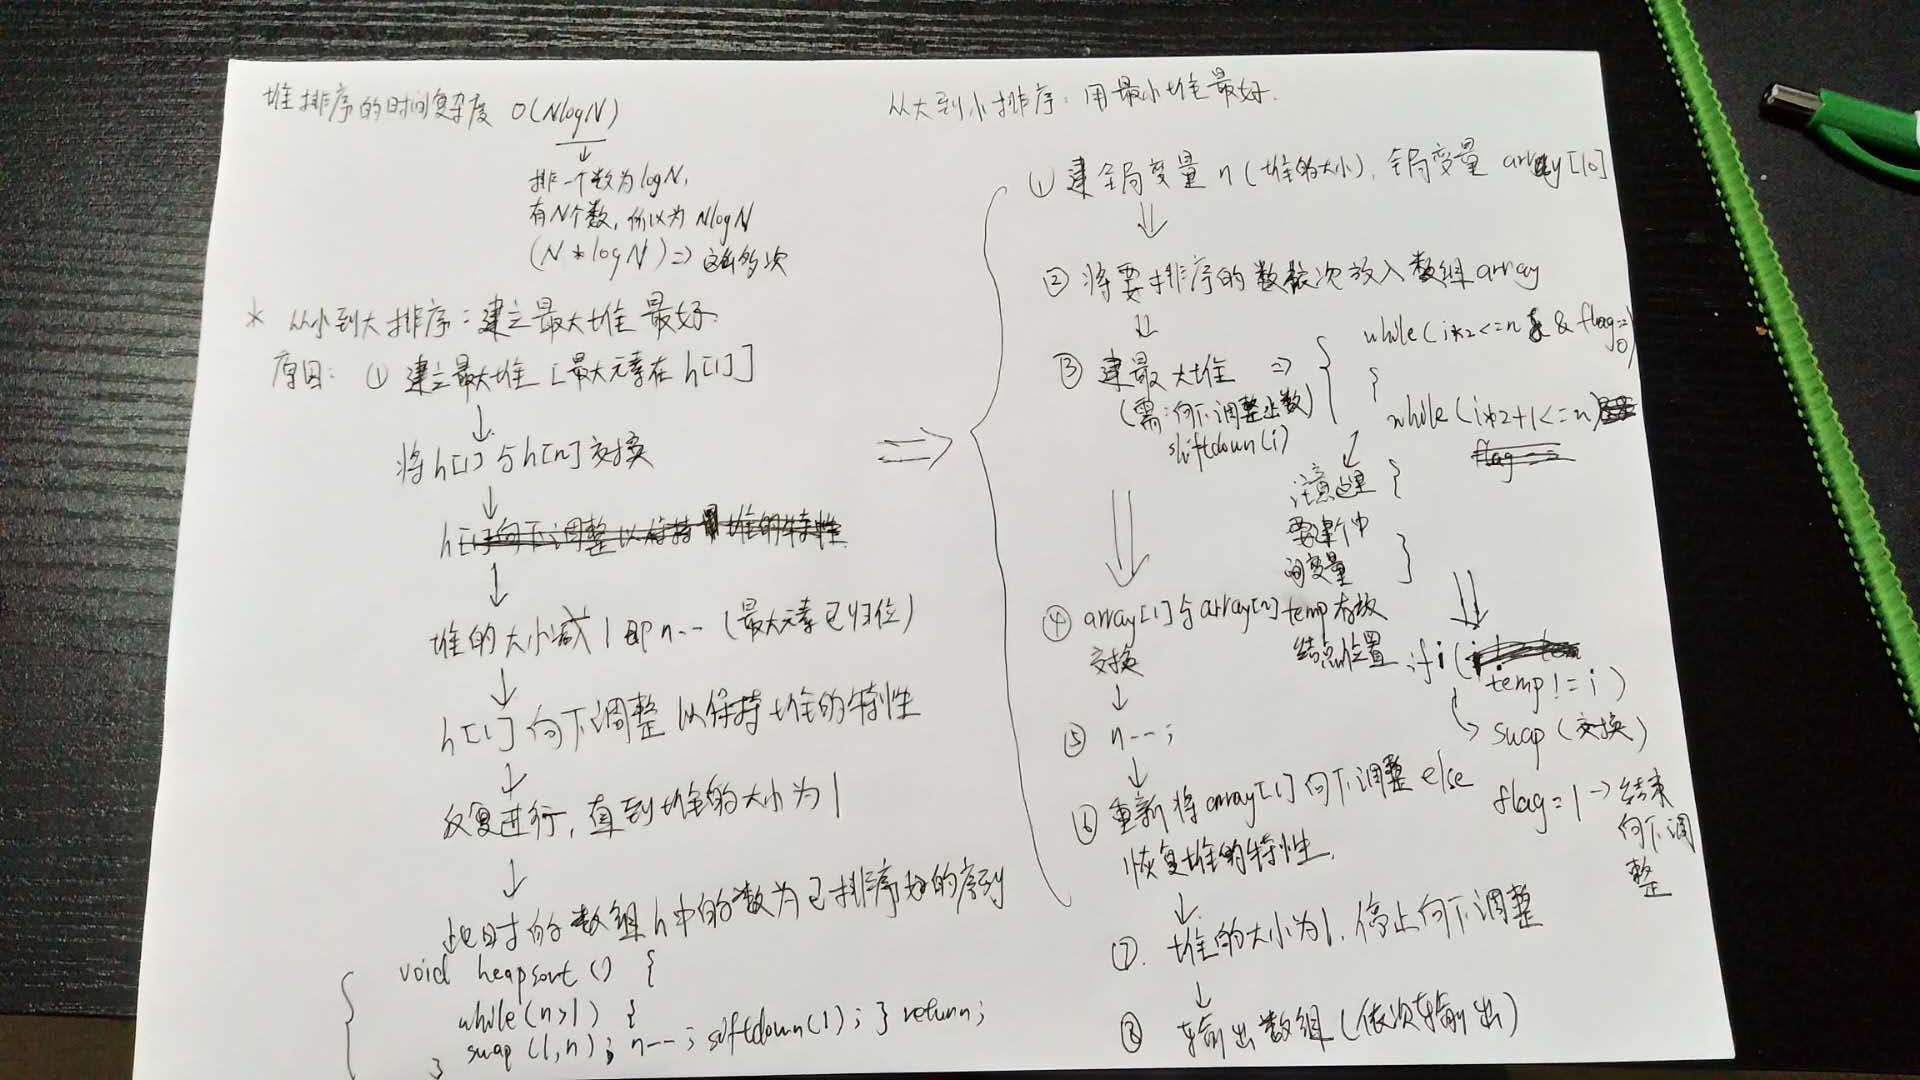 堆排序的时间复杂度 O(NlogN)
↓
排一个数为logN,
有N个数, 所以为 NlogN
(N*logN)=> 这么多次
* 从小到大排序:建立最大堆最好.
原因: ① 建立最大堆[最大元素在h[1]]
↓
将h[1]与h[n]交换
↓
h[1]向下调整以保持堆的特性
↓
堆的大小减1即n--(最大元素已归位)
↓
h[1]向下调整以保持堆的特性
↓
反复进行, 直到堆的大小为1
↓
此时的数组h中的数为已排序好的序列
void heapsort () {
while(n>1) {
swap (1,n); n--; siftdown(1); } return;
}
从大到小排序: 用最小堆最好.
① 建全局变量 n(堆的大小), 全局变量 array[10]
⇓
② 将要排序的数依次放入数组array
⇓
③ 建最大堆 =>
(需:向下调整此数)
shiftdown(i)
while(i*2<=n & flag==0)
{
while(i*2+1<=n)
flag=
注意这里
要建个中
间变量
temp存放
结点位置
{
}
⇓
if (
temp!=i)
swap(交换)
else
flag=1→结束
向下调
整
④ array[1]与array[n]
交换
↓
⑤ n--;
↓
⑥ 重新将array[1]向下调整
恢复堆的特性.
↓
⑦. 堆的大小为1. 停止向下调整
↓
⑧ 输出数组(依次输出)